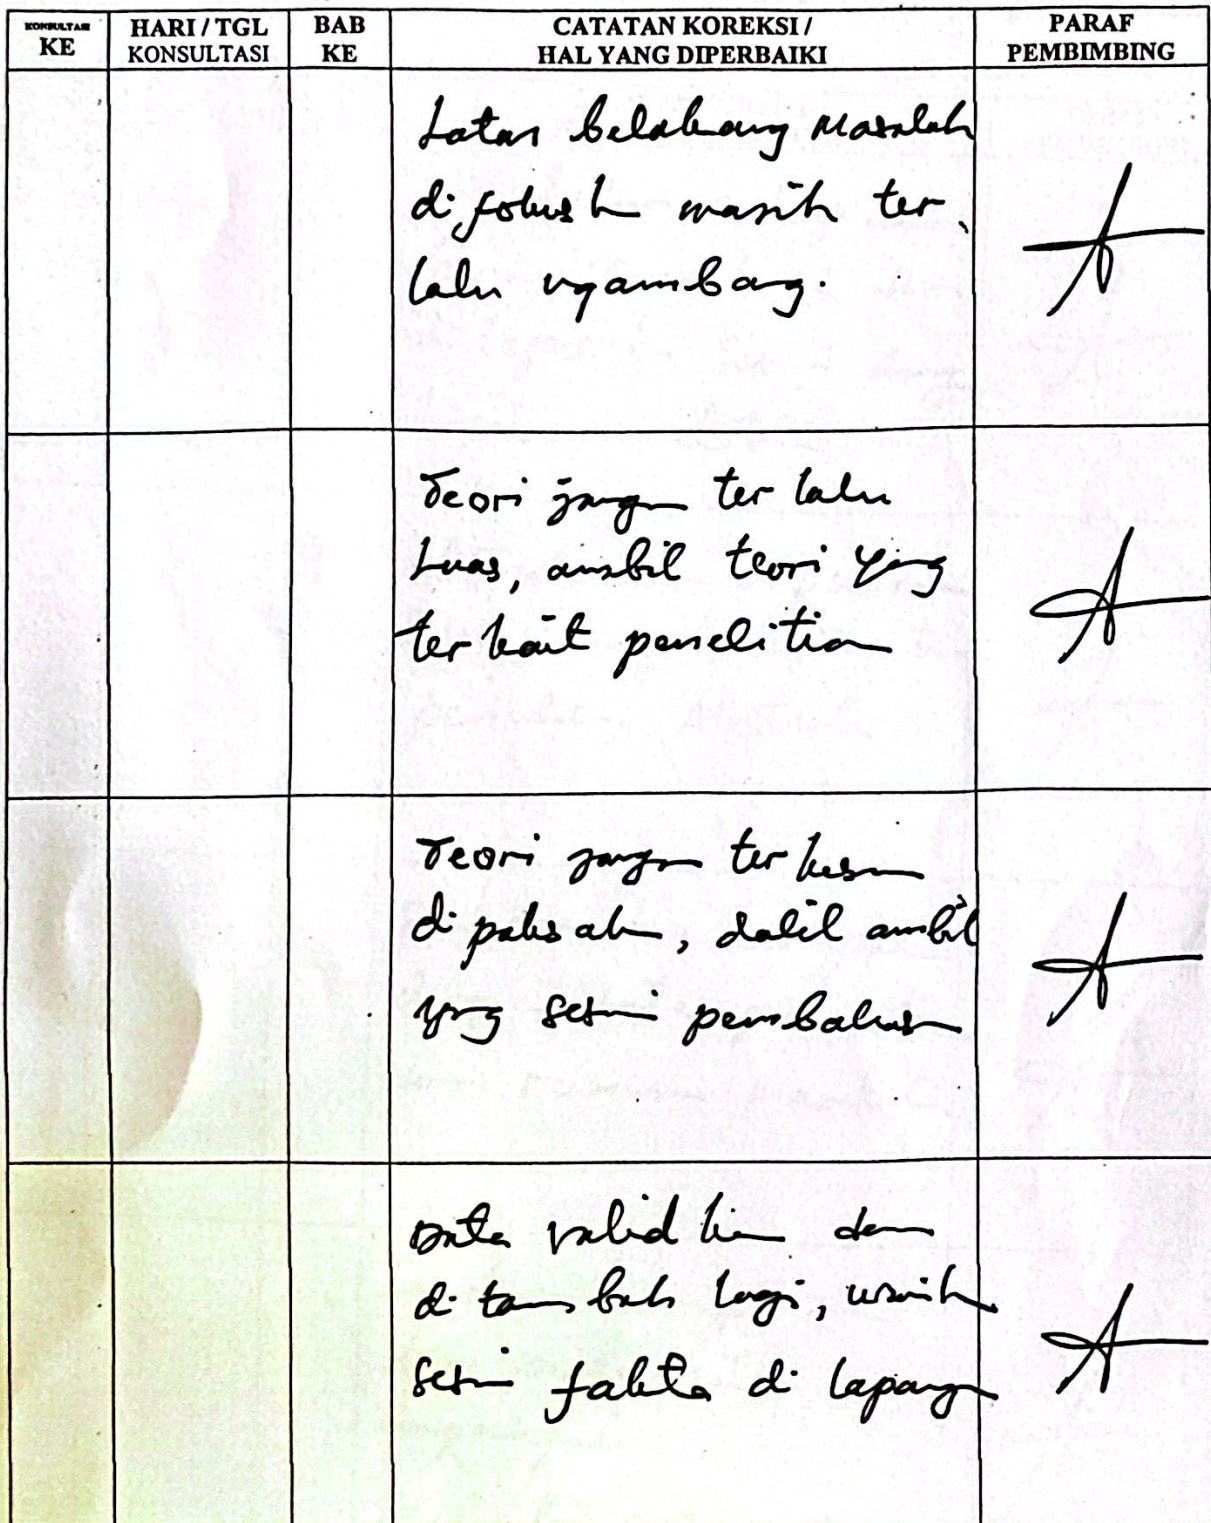 KONSULTASI KE
HARI / TGL KONSULTASI
BAB KE
CATATAN KOREKSI / HAL YANG DIPERBAIKI
PARAF PEMBIMBING
Latar belakang Masalah
di fokuskan masih ter
lalu ngambang.
Teori jangan ter lalu
Luas, ambil teori yang
ter kait penelitian
Teori jangan ter kesan
di paksakan, dalil ambil
yang sesuai pembahasan
Data validkan dan
di tambah lagi,
sesuai fakta di lapangan